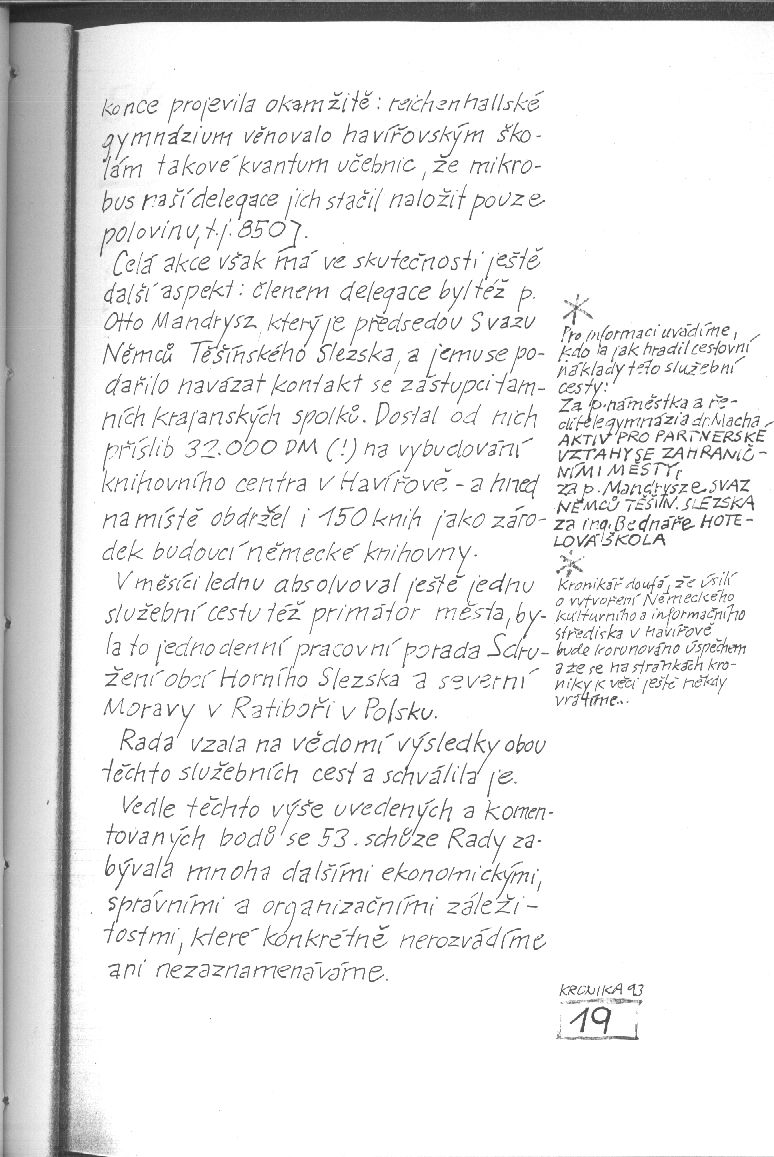 konce projevila okamžitě: reichenhallské
gymnázium věnovalo havířovským ško-
lám takové kvantum učebnic, že mikro-
bus naší delegace jich stačil naložit pouze
polovinu, t.j. 850).
Celá akce však má ve skutečnosti ještě
další aspekt: členem delegace byl též p.
Otto Mandrysz, který je předsedou Svazu
Němců Těšínského Slezska, a jemu se po-
dařilo navázat kontakt se zástupci tam-
ních krajanských spolků. Dostal od nich
příslib 32.000 DM (!) na vybudování
knihovního centra v Havířově - a hned
na místě obdržel i 150 knih jako záro-
dek budoucí německé knihovny.
V měsíci lednu absolvoval ještě jednu
služební cestu též primátor města, by-
la to jednodenní pracovní porada Sdru-
žení obcí Horního Slezska a severní
Moravy v Ratiboři v Polsku.
Rada vzala na vědomí výsledky obou
těchto služebních cest a schválila je.
Vedle těchto výše uvedených a komen-
tovaných bodů se 53. schůze Rady za-
bývala mnoha dalšími ekonomickými,
správními a organizačními záleži-
tostmi, které konkrétně nerozvádíme
ani nezaznamenáváme.
Pro informaci uvádíme,
kdo a jak hradil cestovní
náklady této služební
cesty:
Za p. náměstka a ře-
ditele gymnázia dr. Macha
AKTIV PRO PARTNERSKÉ
VZTAHY SE ZAHRANIČ-
NÍMI MĚSTY,
za p. Mandrysze SVAZ
NĚMCŮ TĚŠÍN. SLEZSKA
za ing. Bednáře HOTE-
LOVÁ ŠKOLA
Kronikář doufá, že úsilí
o vytvoření Německého
kulturního a informačního
střediska v Havířově
bude korunováno úspěchem
a že se na stránkách kro-
niky k věci ještě někdy
vrátíme...
KRONIKA 93
19